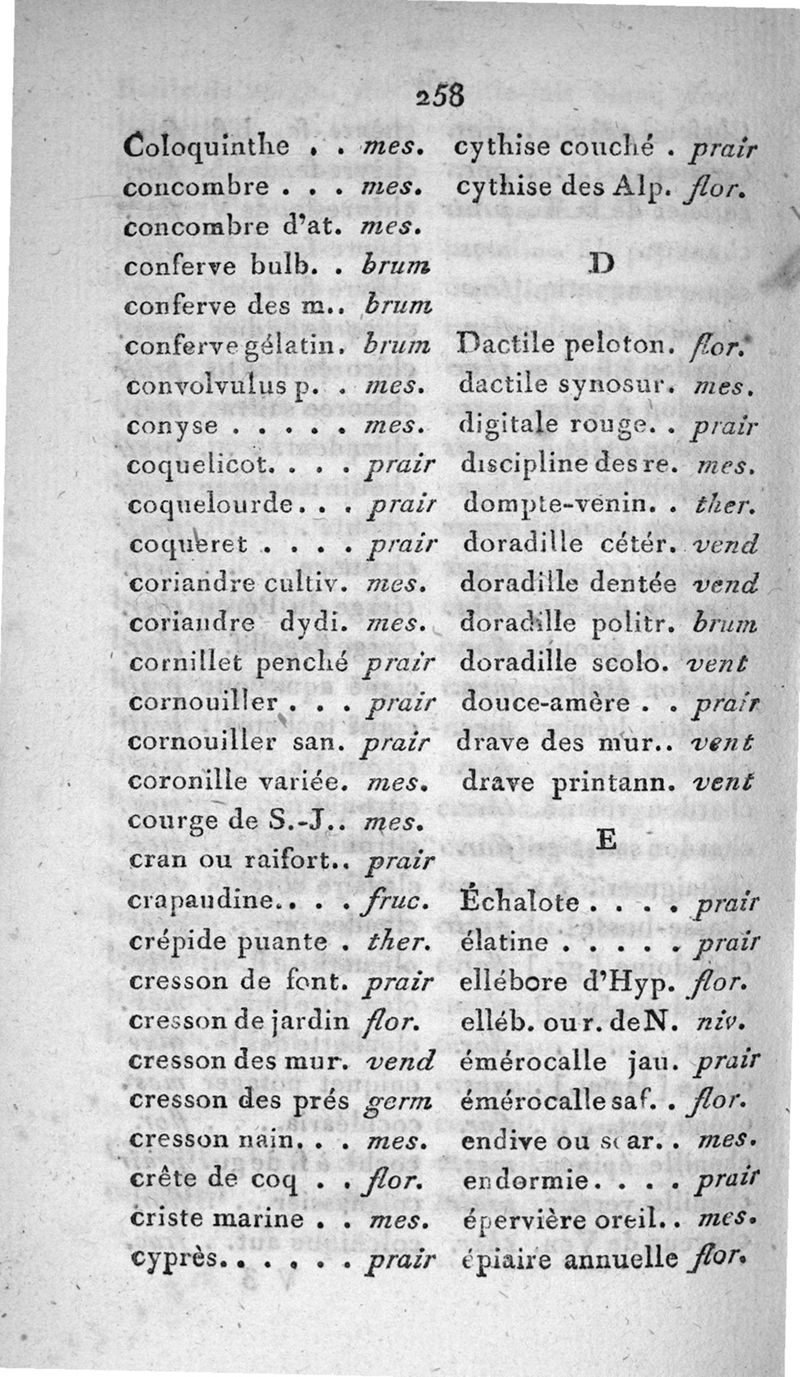 258
Coloquinthe . . mes.
concombre . . . mes.
concombre d'at. mes.
conferve bulb. . brum
conferve des m.. brum
conferve gélatin. brum
convolvulus p. . mes.
conyse . . . . . mes.
coquelicot. . . . prair
coquelourde. . . prair
coqueret . . . . prair
coriandre cultiv. mes.
coriandre dydi. mes.
cornillet penché prair
cornouiller . . . prair
cornouiller san. prair
coronille variée. mes.
courge de S.-J.. mes.
cran ou raifort.. prair
crapaudine.. . . fruc.
crépide puante . ther.
cresson de font. prair
cresson de jardin flor.
cresson des mur. vend
cresson des prés germ
cresson nain. . . mes.
crête de coq . . flor.
criste marine . . mes.
cyprès.. . . . . prair
cythise couché . prair
cythise des Alp. flor.
D
Dactile peloton. flor.
dactile synosur. mes.
digitale rouge. . prair
discipline des re. mes.
dompte-venin. . ther.
doradille cétér. vend
doradille dentée vend
doradille politr. brum
doradille scolo. vent
douce-amère . . prair
drave des mur.. vent
drave printann. vent
E
Échalote . . . . prair
élatine . . . . . prair
ellébore d'Hyp. flor.
elléb. ou r. de N. niv.
émérocalle jau. prair
émérocalle saf. . flor.
endive ou scar. . mes.
endormie. . . . prair
épervière oreil.. mes.
épiaire annuelle flor.